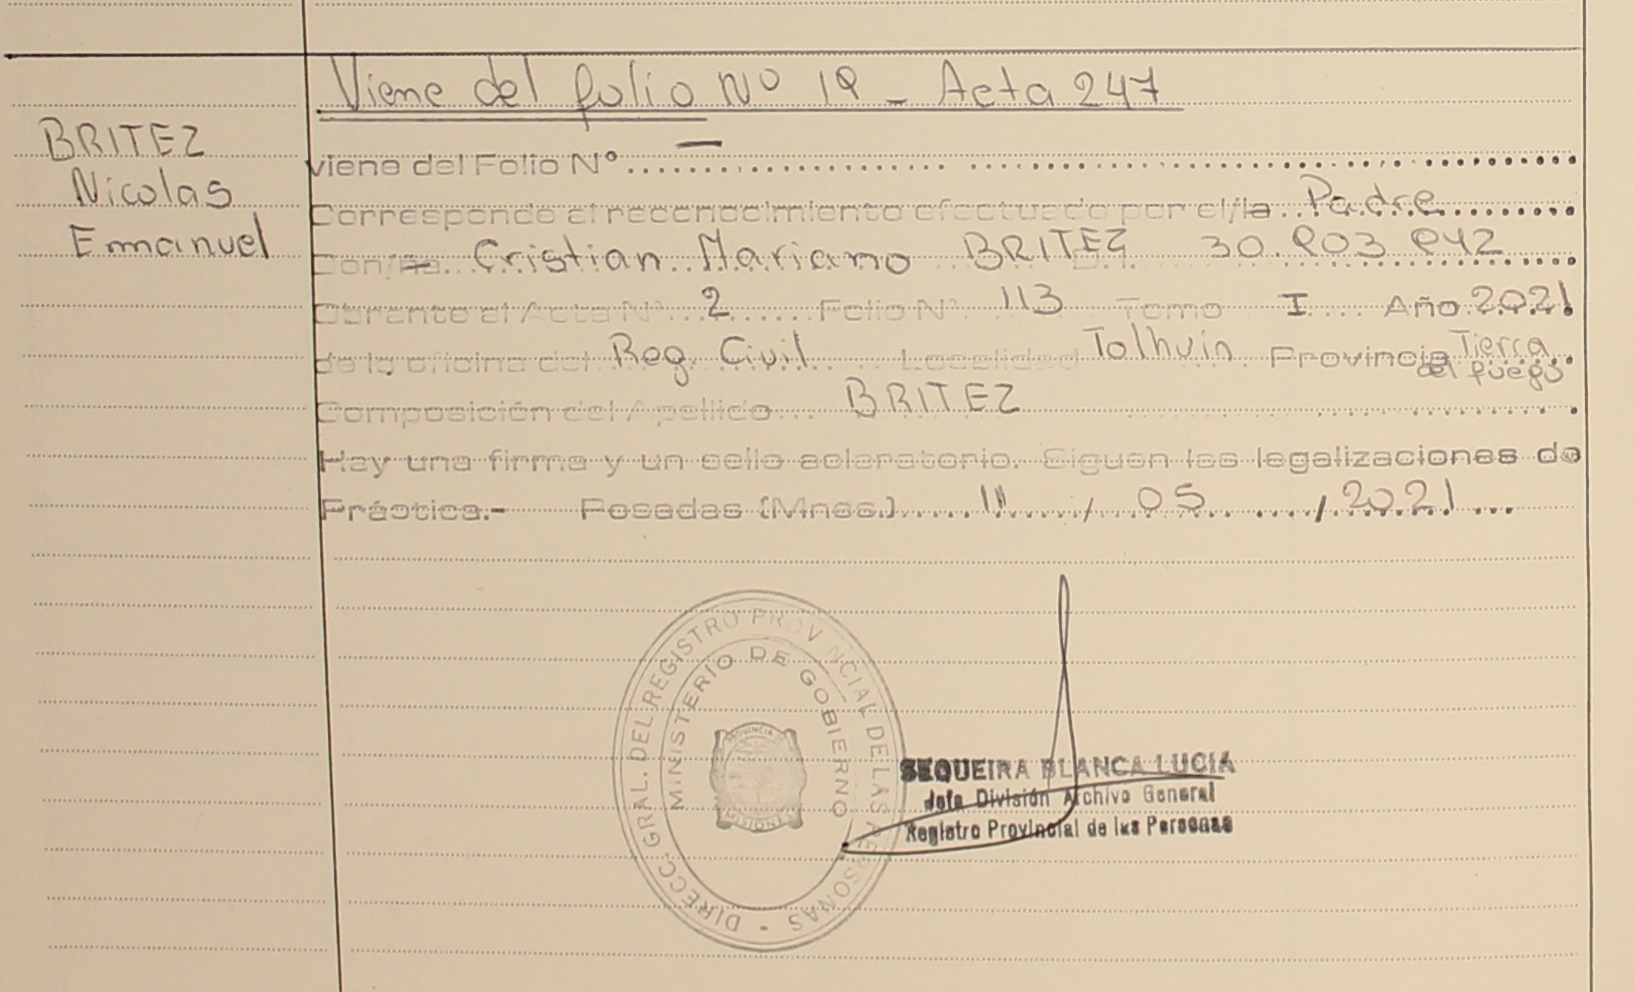 Viene del folio Nº 19 - Acta 247
BRITEZ
Nicolas
Emanuel
viene del Folio Nº —
Corresponde al reconocimiento efectuado por el/la Padre
Don/ña Cristian Mariano BRITEZ 30.903.942
Obrante al Acta Nº 2 Folio Nº 113 Tomo I Año 2021
de la oficina del Reg. Civil Localidad Tolhuin Provincia Tierra
del fuego
Composición del Apellido BRITEZ
Hay una firma y un sello aclaratorio. Siguen las legalizaciones de
Práctica.- Posadas (Mnes.) 11 / 05 / 2021
DIRECC. GRAL. DEL REGISTRO PROVINCIAL DE LAS PERSONAS
MINISTERIO DE GOBIERNO
PROVINCIA
MISIONES
SEQUEIRA BLANCA LUCIA
Jefa División Archivo General
Registro Provincial de las Personas